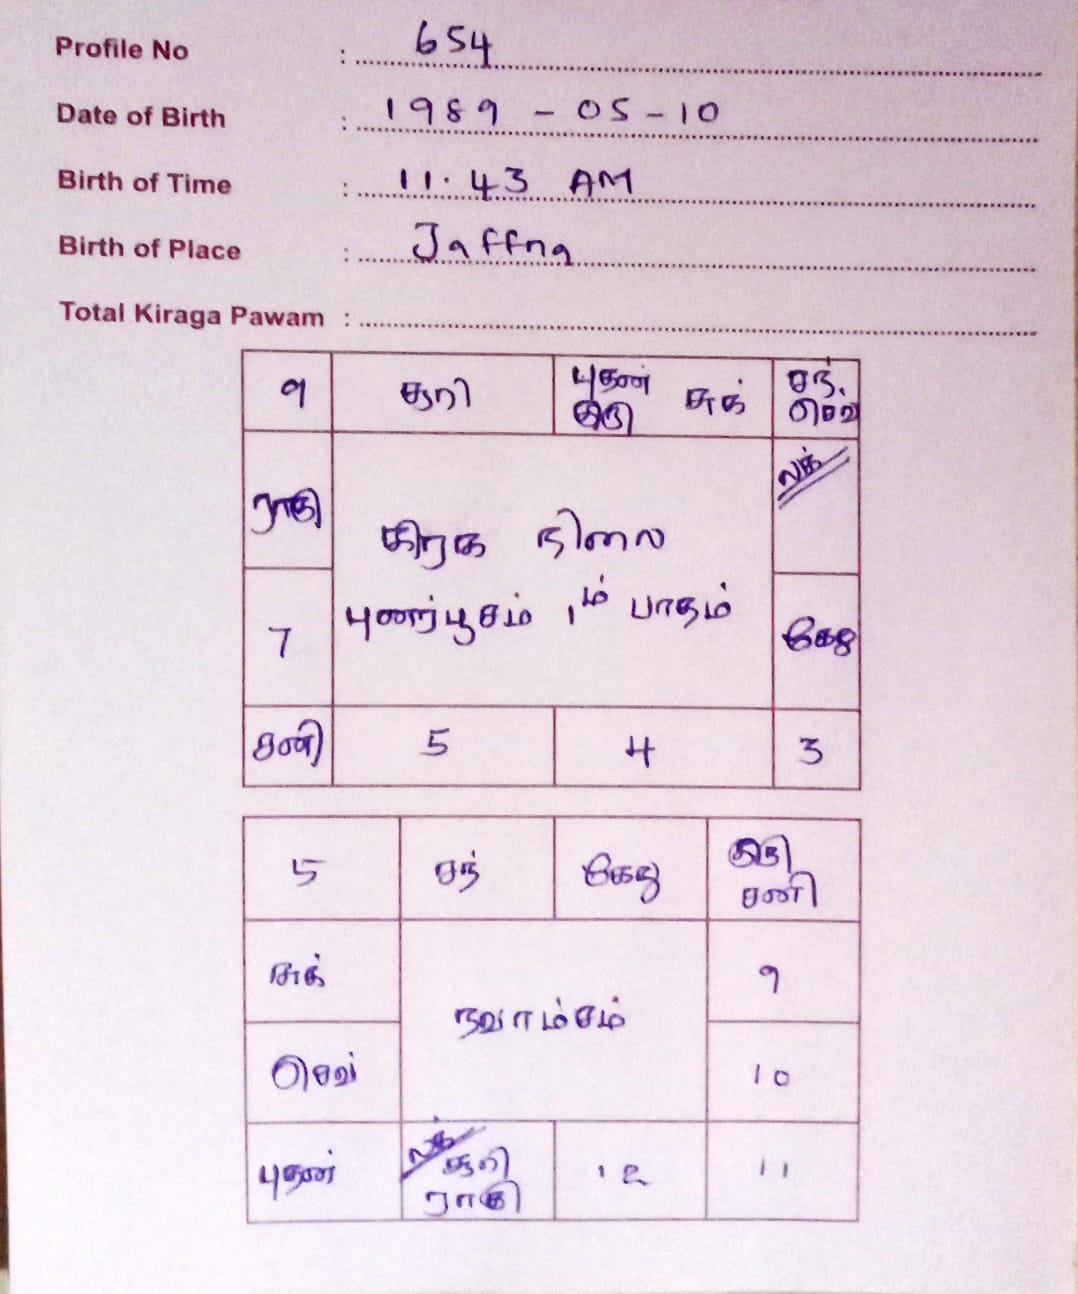 Profile No : 654
Date of Birth : 1989 - 05 - 10
Birth of Time : 11.43 AM
Birth of Place : Jaffna
Total Kiraga Pawam :
9 சூரி புதன் சுக் சந்.
குரு செவ்
லக்
ராகு
கிரக நிலை
புனர்பூசம் 1ம் பாதம்
7 கேது
சனி 5 4 3
5 சந் கேது குரு
சனி
சுக் 9
நவாம்சம்
செவ் 10
லக்
புதன் சூரி 12 11
ராகு